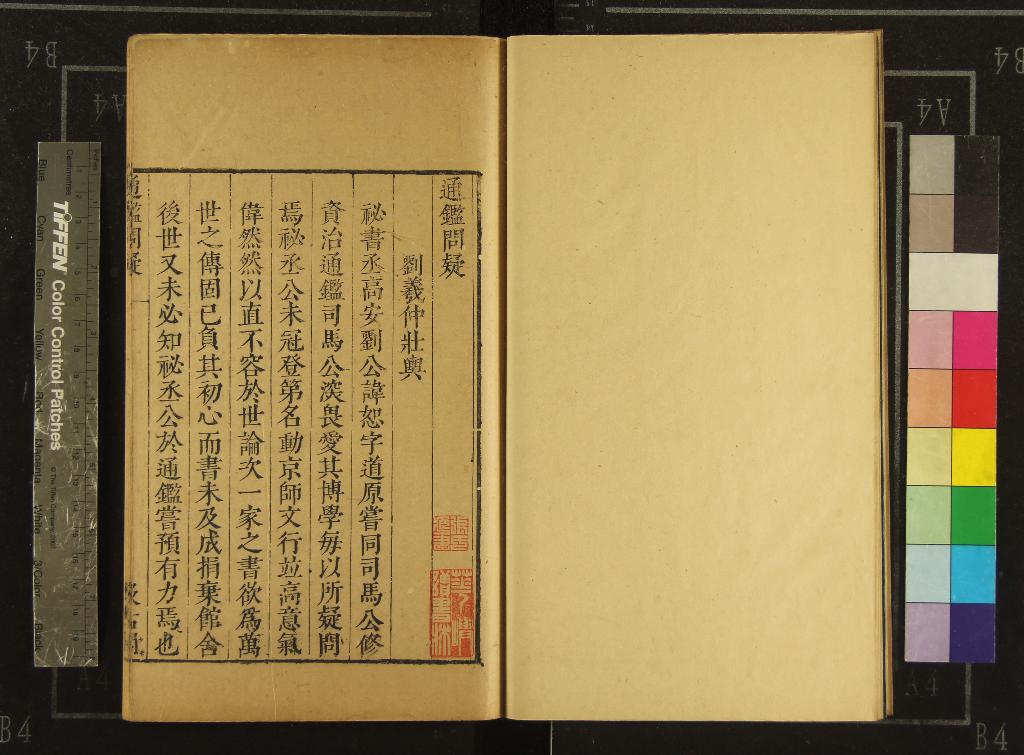 通鑑問疑
劉羲仲壯輿
祕書丞高安劉公諱恕字道原嘗同司馬公修
資治通鑑司馬公深畏愛其博學每以所疑問
焉祕丞公未冠登第名動京師文行並高意氣
偉然然以直不容於世論次一家之書欲爲萬
世之傳固已負其初心而書未及成捐棄館舍
後世又未必知祕丞公於通鑑嘗預有力焉也
通鑑問疑
一
汲古閣
TIFFEN Color Control Patches
© The Tiffen Company, 2007
Centimetres
Inches
Blue
Cyan
Green
Yellow
Red
Magenta
White
3/Color
Black
B4
A4
B4
A4
A4
B4
A4
B4